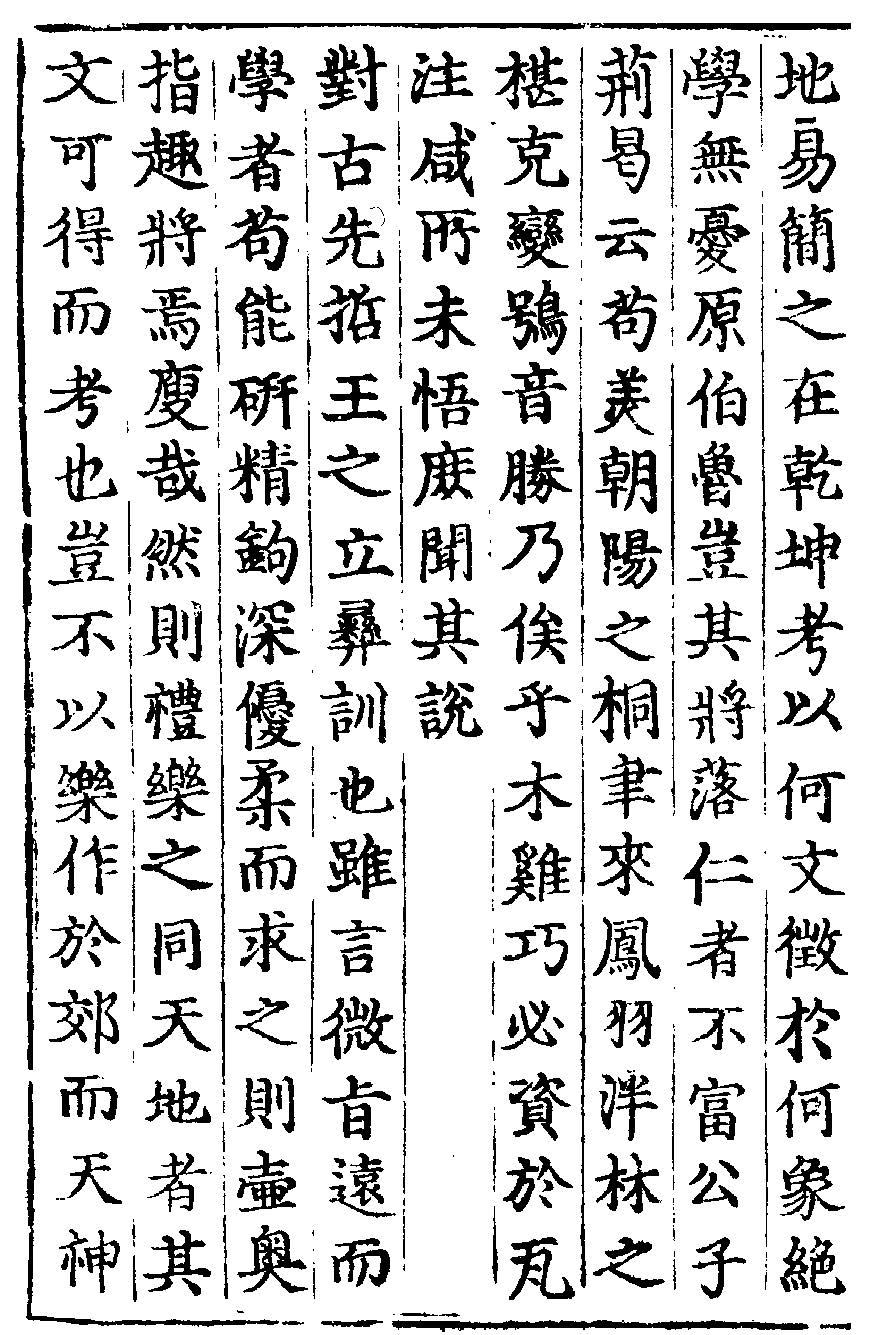 地易簡之在乾坤考以何文徵於何象絶
學無憂原伯魯豈其將落仁者不富公子
荊曷云苟羙朝陽之桐聿來鳳羽泮林之
椹克變鴞音勝乃俟乎木雞巧必資於瓦
注咸所未悟庻聞其說
對古先哲王之立彞訓也雖言微旨遠而
學者苟能硏精鉤深優柔而求之則壷奥
指趣將焉廋哉然則禮樂之同天地者其
文可得而考也豈不以樂作於郊而天神